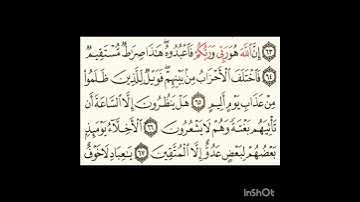 ٦٣ إِنَّ ٱللَّهَ هُوَ رَبِّى وَرَبُّكُمْ فَٱعْبُدُوهُ ۚ هَـٰذَا صِرَٰطٌ مُّسْتَقِيمٌ
٦٤ فَٱخْتَلَفَ ٱلْأَحْزَابُ مِنۢ بَيْنِهِمْ ۖ فَوَيْلٌ لِّلَّذِينَ ظَلَمُوا۟
مِنْ عَذَابِ يَوْمٍ أَلِيمٍ ٦٥ هَلْ يَنظُرُونَ إِلَّا ٱلسَّاعَةَ أَن
تَأْتِيَهُم بَغْتَةً وَهُمْ لَا يَشْعُرُونَ ٦٦ ٱلْأَخِلَّآءُ يَوْمَئِذٍۭ
بَعْضُهُمْ لِبَعْضٍ عَدُوٌّ إِلَّا ٱلْمُتَّقِينَ ٦٧ يَـٰعِبَادِ لَا خَوْفٌ
InShOt